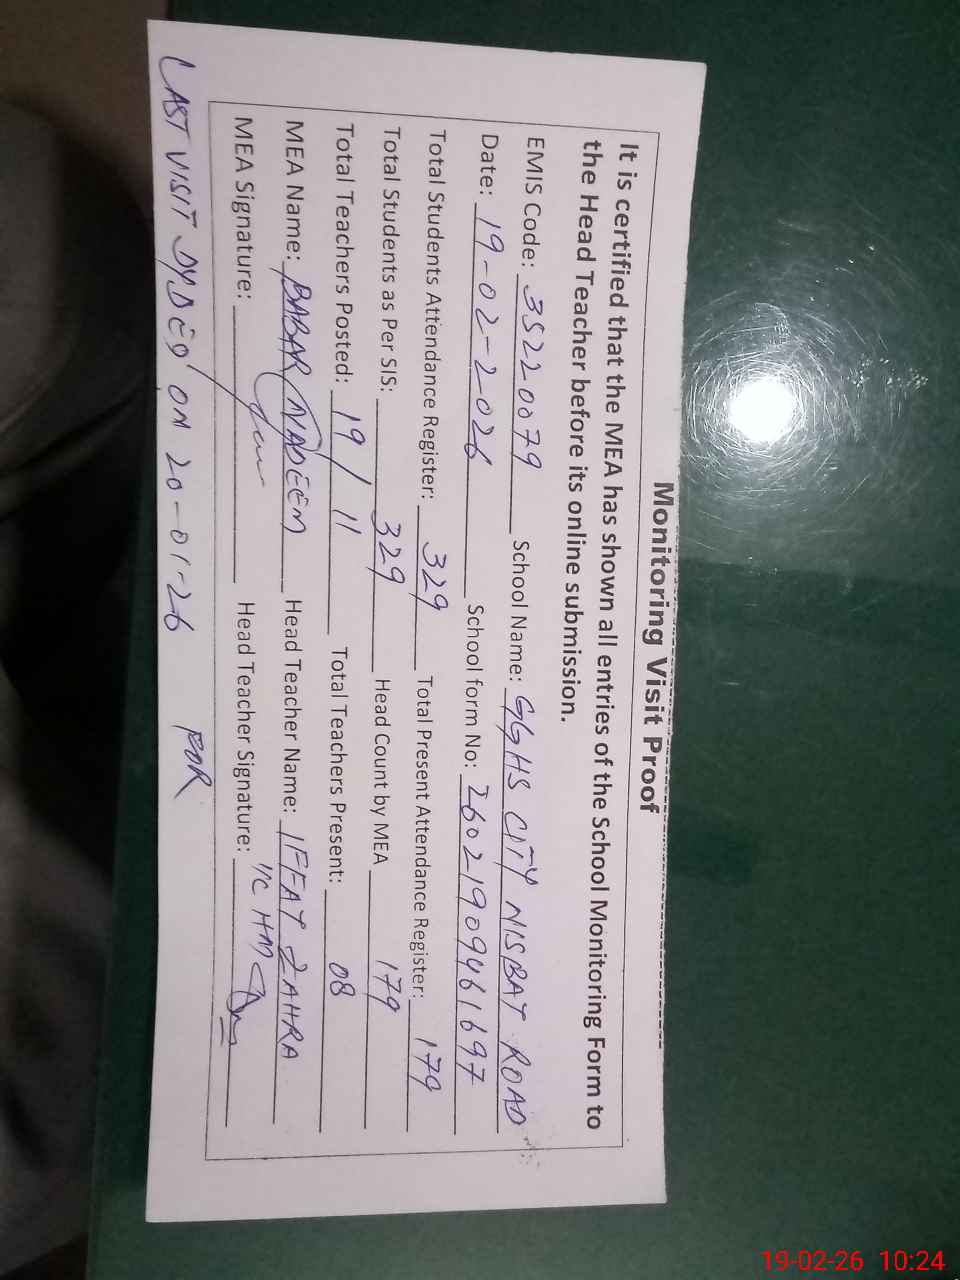 Monitoring Visit Proof
It is certified that the MEA has shown all entries of the School Monitoring Form to
the Head Teacher before its online submission.
EMIS Code: 35220079 School Name: GGHS CITY NISBAT ROAD
Date: 19-02-2026 School form No: 26021909461697
Total Students Attendance Register: 329 Total Present Attendance Register: 179
Total Students as Per SIS: 329 Head Count by MEA 179
Total Teachers Posted: 19/11 Total Teachers Present: 08
MEA Name: BABAR NADEEM Head Teacher Name: IFFAT ZAHRA
MEA Signature: Head Teacher Signature: I/C HM
LAST VISIT DYDEO ON 20-01-26
19-02-26 10:24